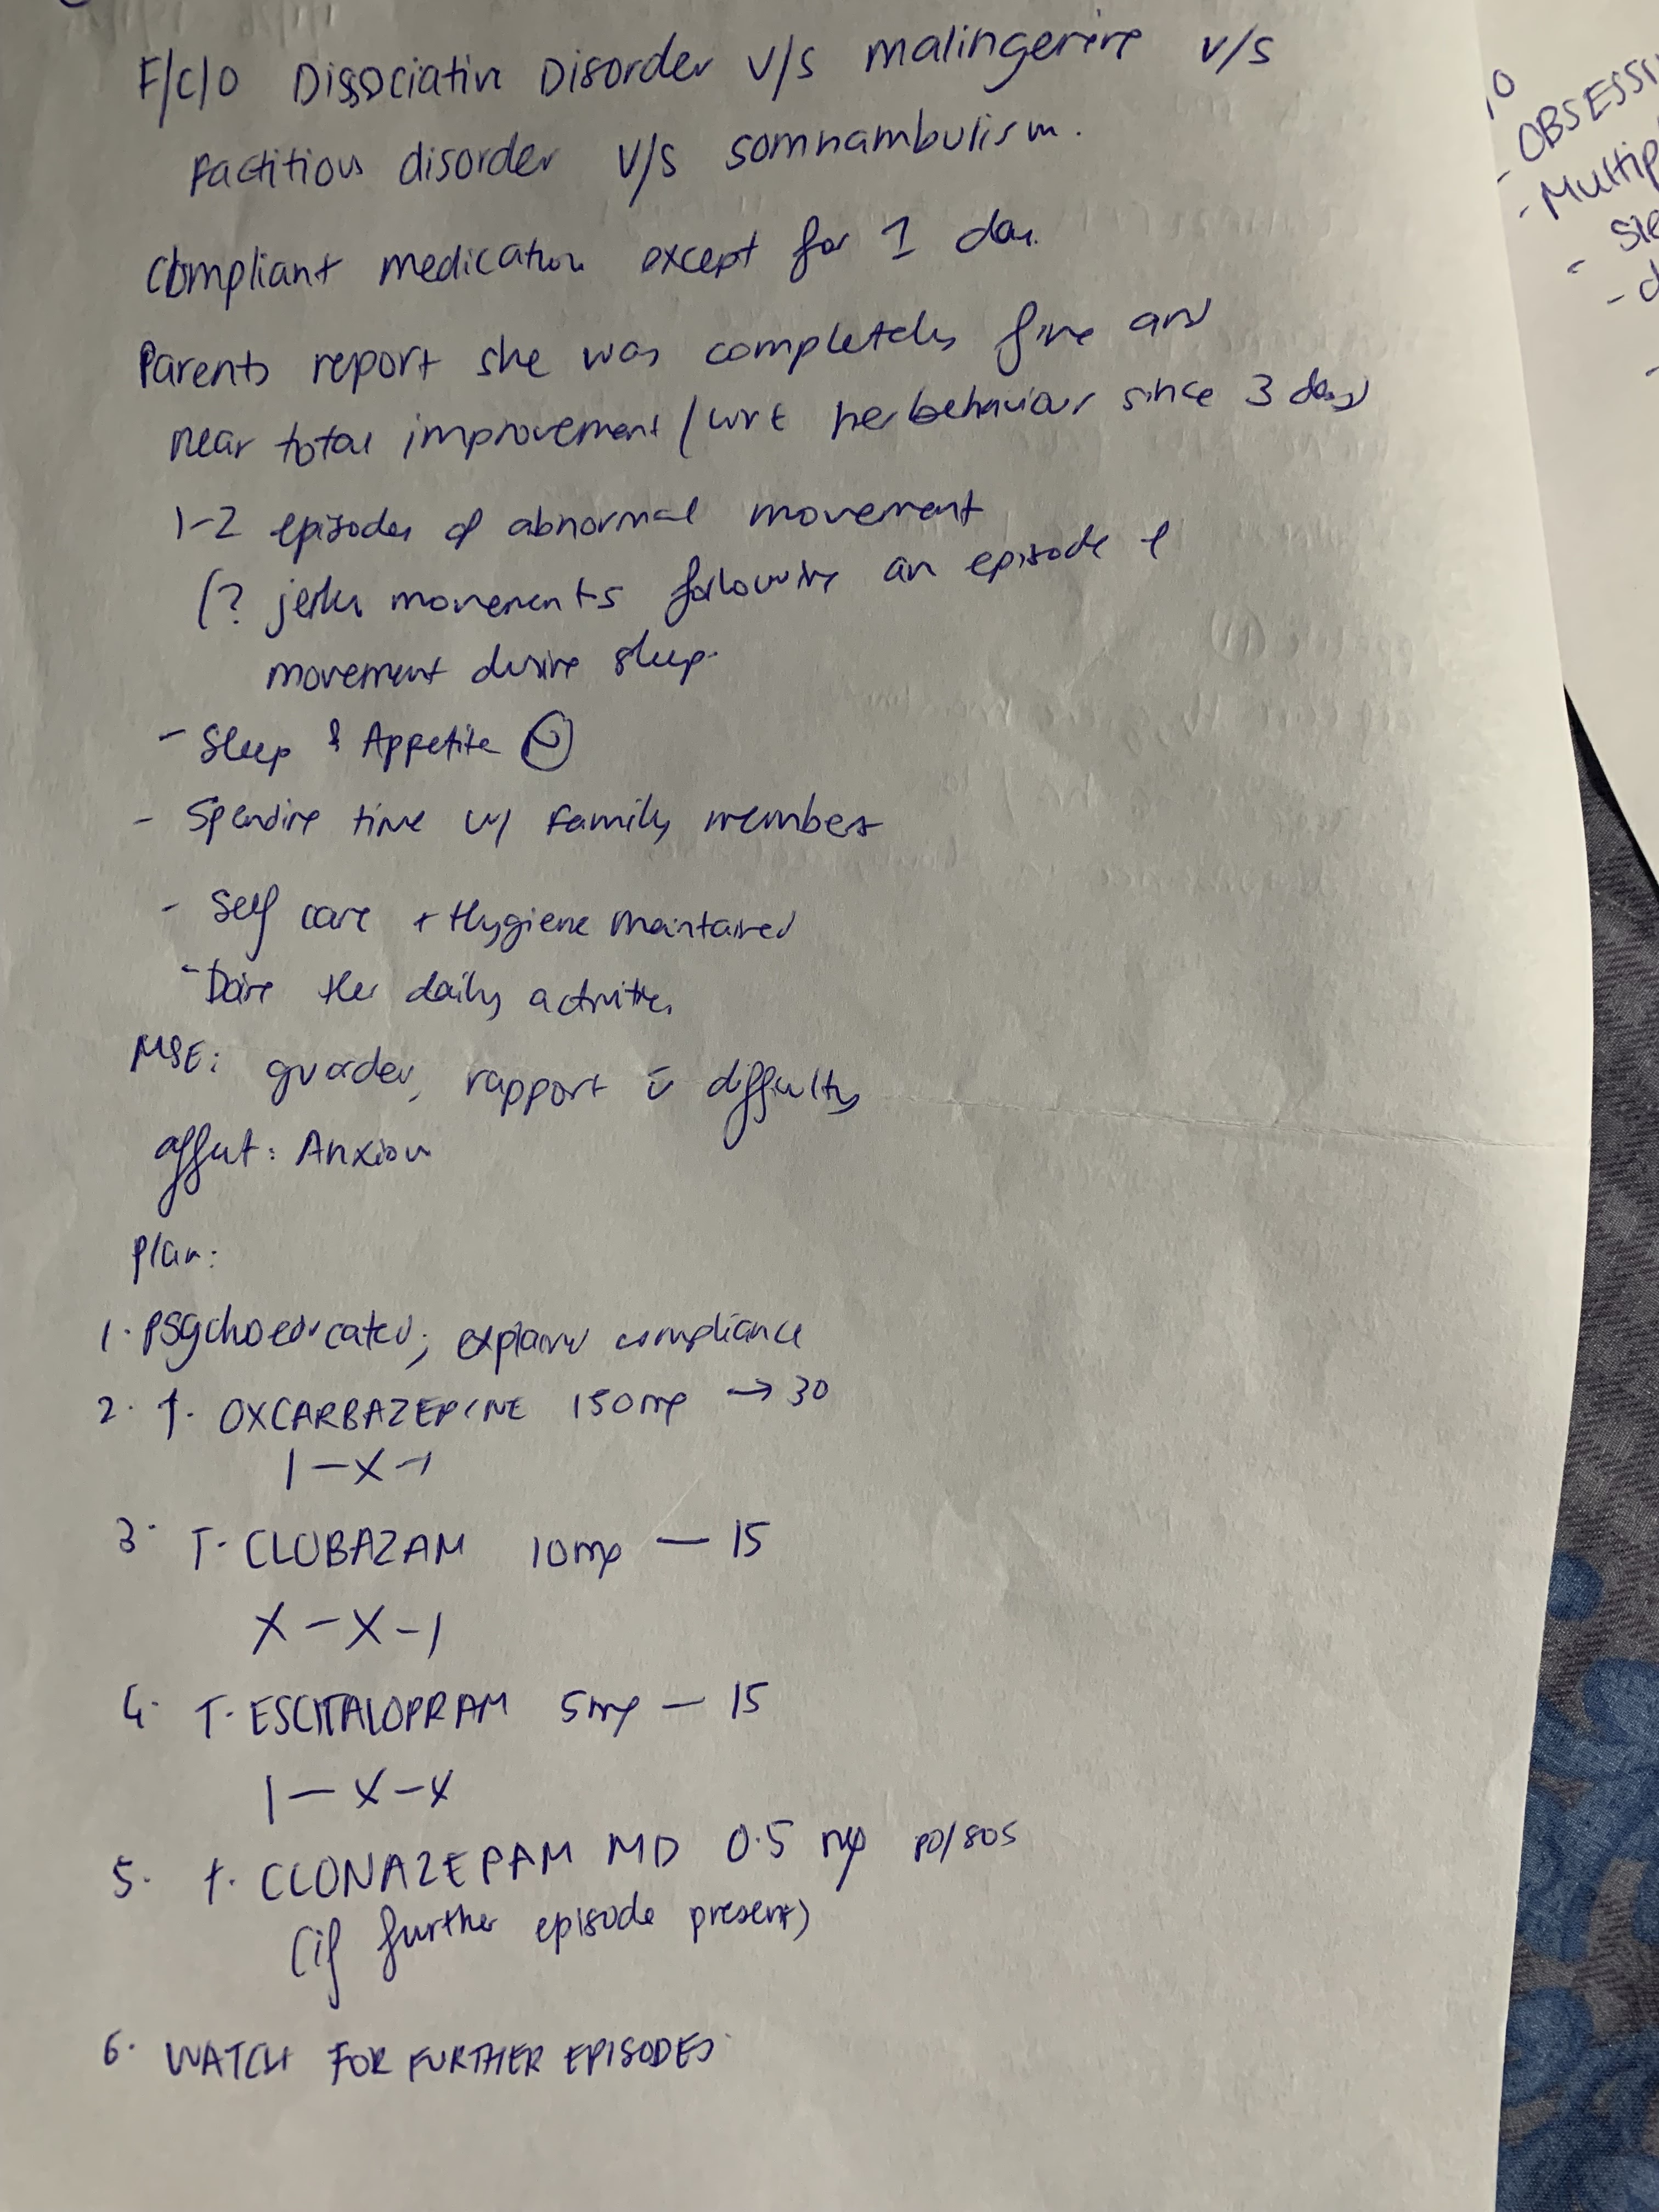 F/C/O Dissociative Disorder v/s malingering v/s
Factitious disorder v/s somnambulism.
Compliant medication except for 1 day.
Parents report she was completely fine and
near total improvement / wrt her behaviour since 3 days
1-2 episodes of abnormal movement
(? jerky movements following an episode of
movement during sleep.
- Sleep & Appetite
- Spending time w/ family members
- Self care + Hygiene maintained
- Doing her daily activities
MSE: guarded, rapport c̄ difficulty
affect: Anxious
Plan:
1. Psychoeducated; explained compliance
2. T. OXCARBAZEPINE 150mg → 30
1-X-1
3. T. CLOBAZAM 10mg — 15
X-X-1
4. T. ESCITALOPRAM 5mg — 15
1-X-X
5. T. CLONAZEPAM MD 0.5 mg PO/SOS
(if further episode present)
6. WATCH FOR FURTHER EPISODES
- OBSESSI
- Multip